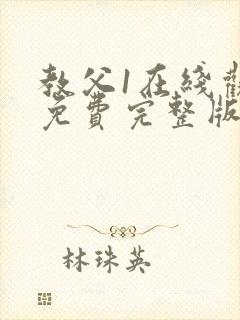 教父1在綫觀
免費完整版
林珠英